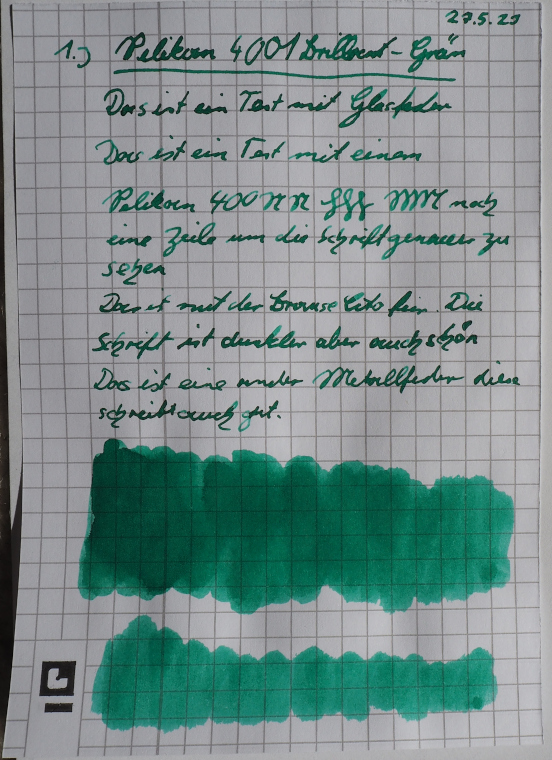 27.5.21
1.) Pelikan 4001 Brillant-Grün
Das ist ein Test mit Glasfeder
Das ist ein Test mit einem
Pelikan 400 noch
eine Zeile um die Schrift genauer zu
sehen
Das ist mit der Brause Cito fein. Die
Schrift ist dunkler aber auch schön
Das ist eine runder Metallfeder diese
schreibt auch gut.